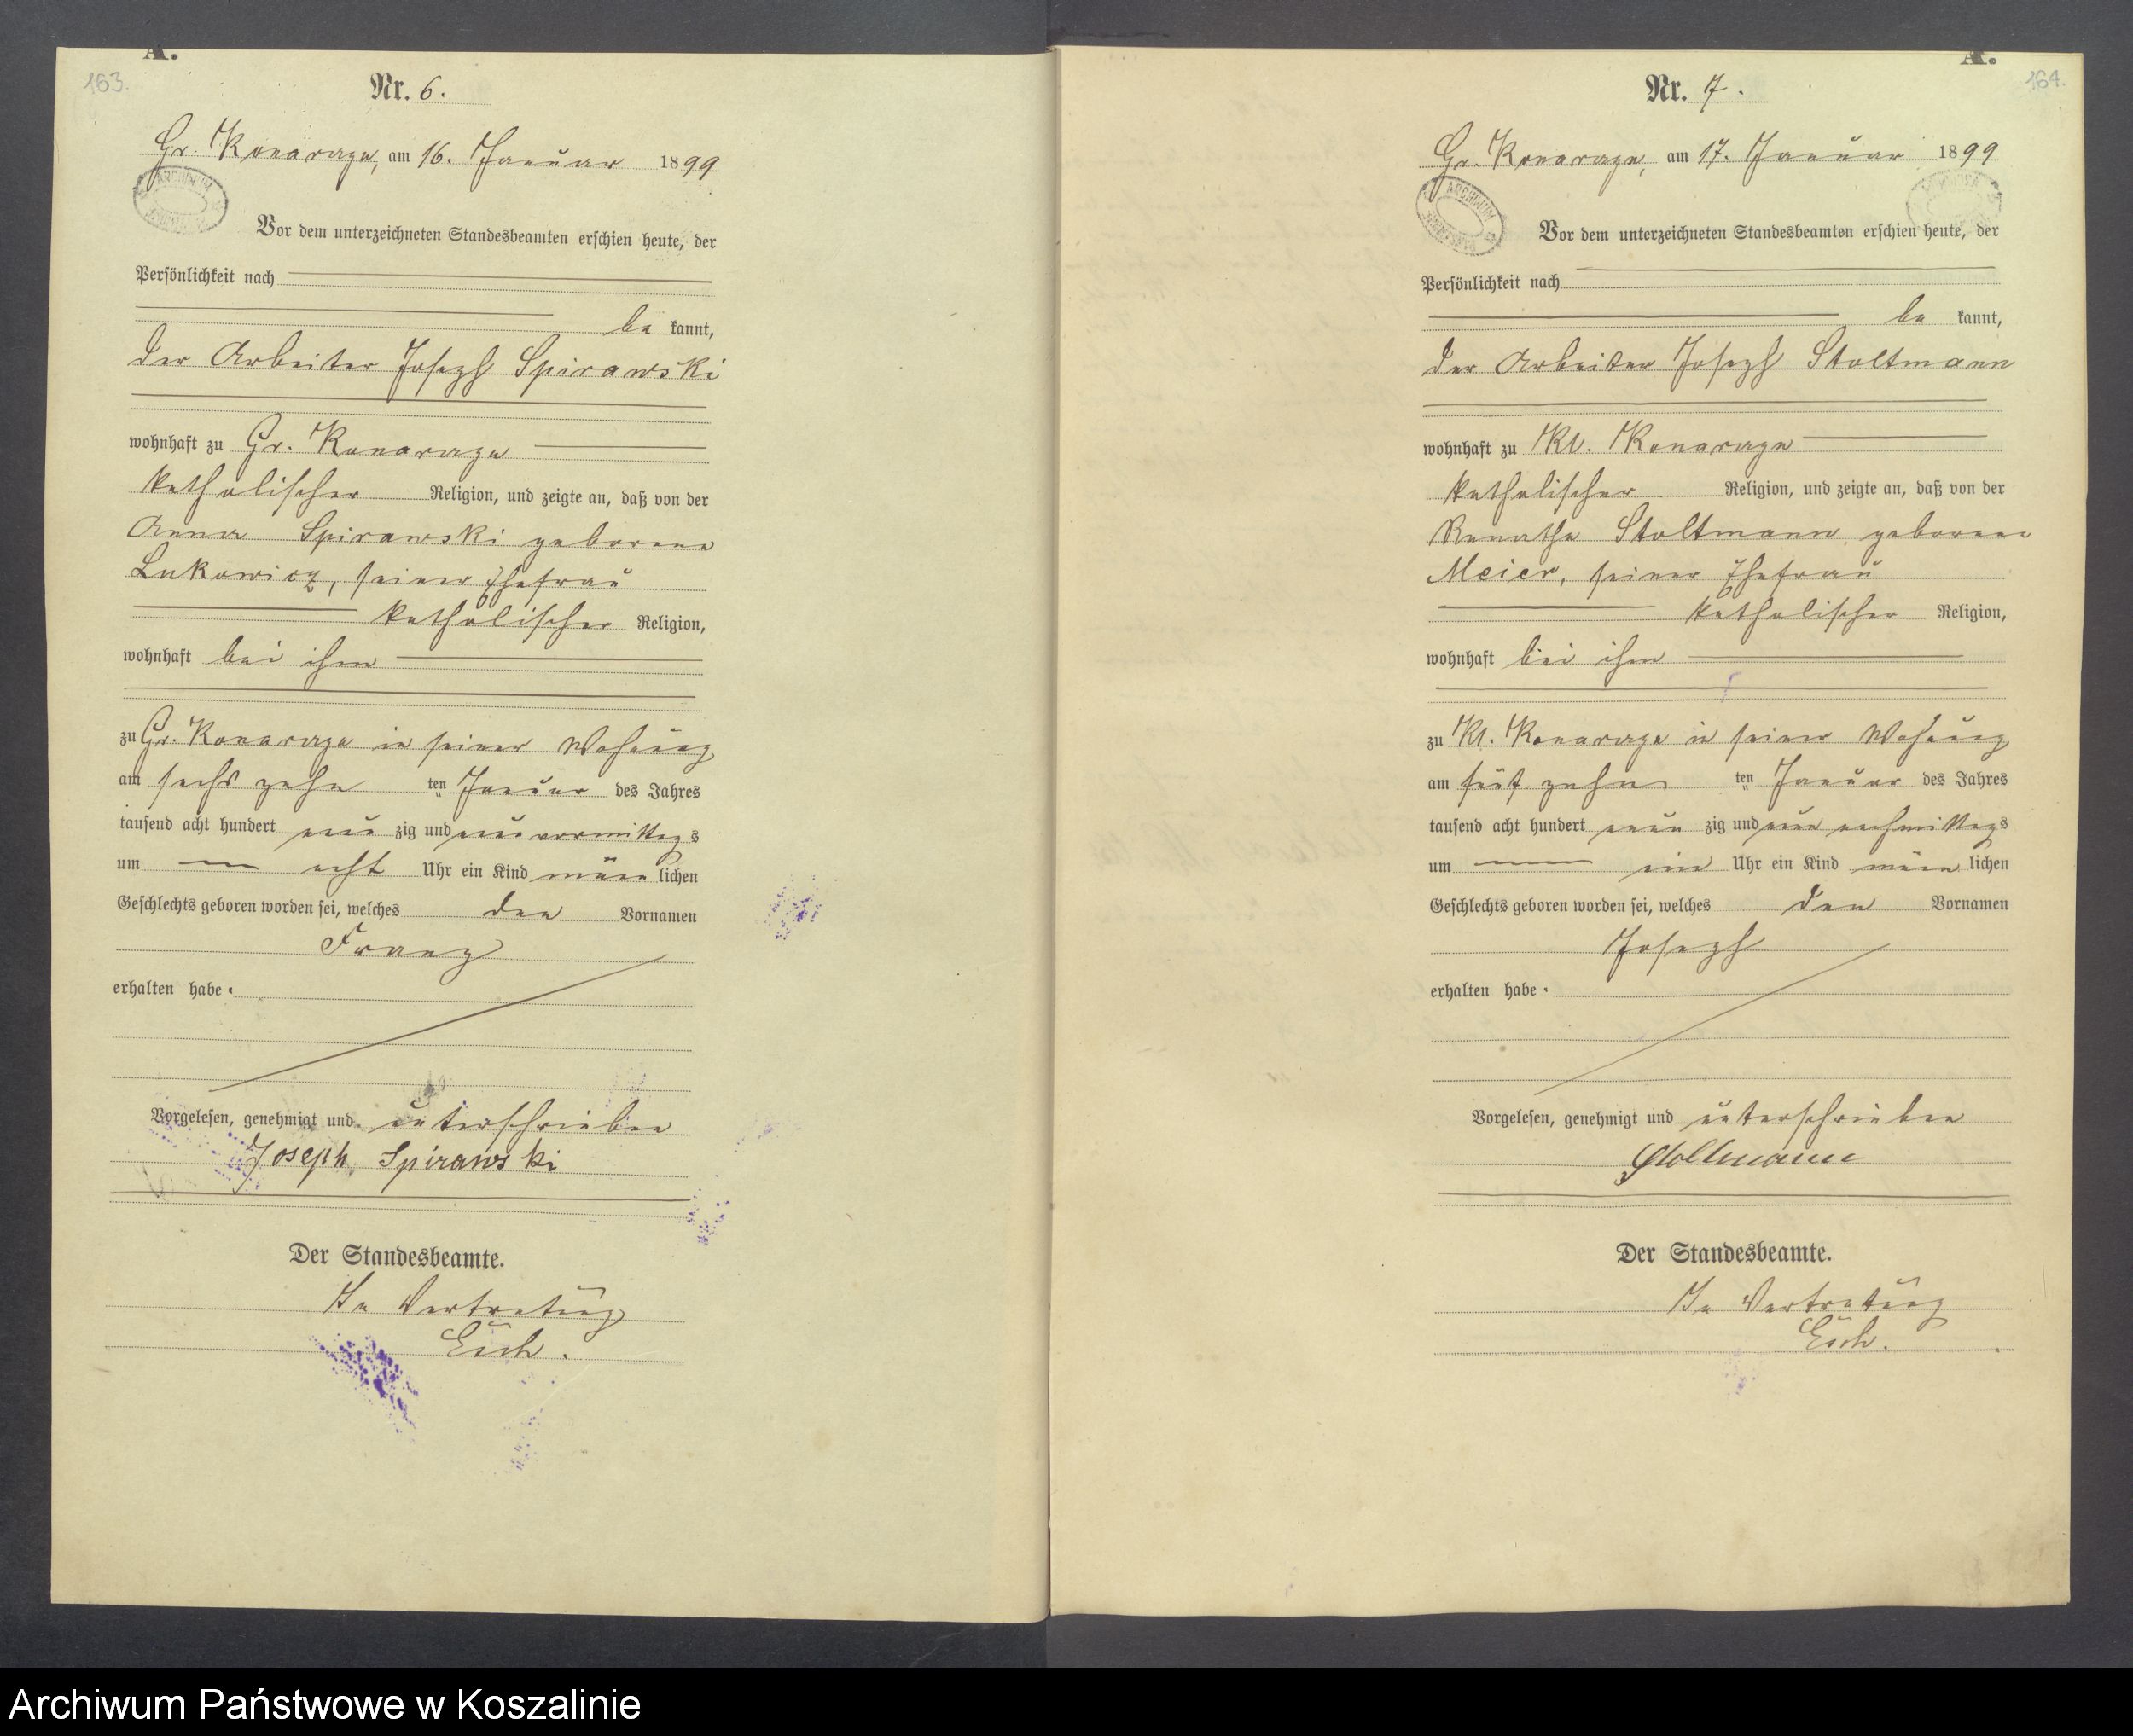 A.
163.
Nr. 6.
Gr. Konarczyn, am 16. Januar 1899
ARCHIWUM
Vor dem unterzeichneten Standesbeamten erschien heute, der
Persönlichkeit nach
be kannt,
der Arbeiter Joseph Spirawski
wohnhaft zu Gr. Konarczyn
katholischer Religion, und zeigte an, daß von der
Anna Spirawski geborene
Lukowicz, seiner Ehefrau
katholischer Religion,
wohnhaft bei ihm
zu Gr. Konarczyn in seiner Wohnung
am sechs zehn ten Januar des Jahres
tausend acht hundert neun zig und neun vormittags
um acht Uhr ein Kind männ lichen
Geschlechts geboren worden sei, welches den Vornamen
Franz
erhalten habe.
Vorgelesen, genehmigt und unterschrieben
Joseph Spirawski
Der Standesbeamte.
In Vertretung
A.
164.
Nr. 7.
Gr. Konarczyn, am 17. Januar 1899
ARCHIWUM
Vor dem unterzeichneten Standesbeamten erschien heute, der
Persönlichkeit nach
be kannt,
der Arbeiter Joseph Stoltmann
wohnhaft zu Kl. Konarczyn
katholischer Religion, und zeigte an, daß von der
Renathe Stoltmann geborene
Meier, seiner Ehefrau
katholischer Religion,
wohnhaft bei ihm
zu Kl. Konarczyn in seiner Wohnung
am fünf zehn ten Januar des Jahres
tausend acht hundert neun zig und neun nachmittags
um ein Uhr ein Kind männ lichen
Geschlechts geboren worden sei, welches den Vornamen
Joseph
erhalten habe.
Vorgelesen, genehmigt und unterschrieben
Stoltmann
Der Standesbeamte.
In Vertretung
Archiwum Państwowe w Koszalinie